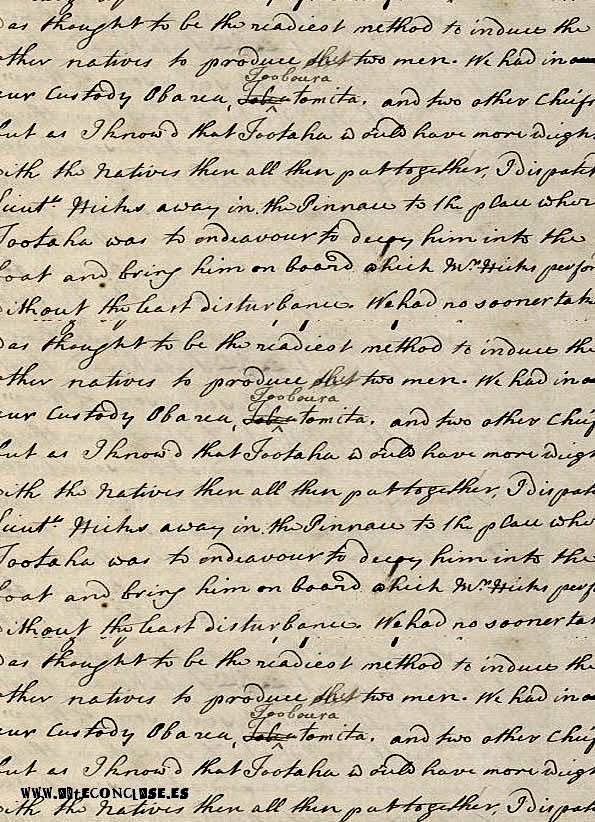 as thought to be the readiest method to induce the
other natives to produce the two men. We had in
Tooboura
our Custody Obarea, tomita, and two other Chiefs
but as I know'd that Tootaha would have more weight
with the Natives then all then put together, I dispatch
Lieutt Hicks away in the Pinnace to the place where
Tootaha was to endeavour to decoy him into the
boat and bring him on board which Mr Hicks perfor
without the least disturbance. We had no sooner tak
as thought to be the readiest method to induce the
other natives to produce the two men. We had in
Tooboura
our Custody Obarea, tomita, and two other Chief
but as I know'd that Tootaha would have more weigh
with the Natives then all then put together, I dispatc
Lieutt Hicks away in the Pinnace to the place whe
Tootaha was to endeavour to decoy him into the
boat and bring him on board which Mr Hicks perfo
without the least disturbance. We had no sooner tak
as thought to be the readiest method to induce the
other natives to produce the two men. We had in
Tooboura
our Custody Obarea, tomita, and two other Chief
but as I know'd that Tootaha would have more weigh
with the Natives then all then put together, I dispatc